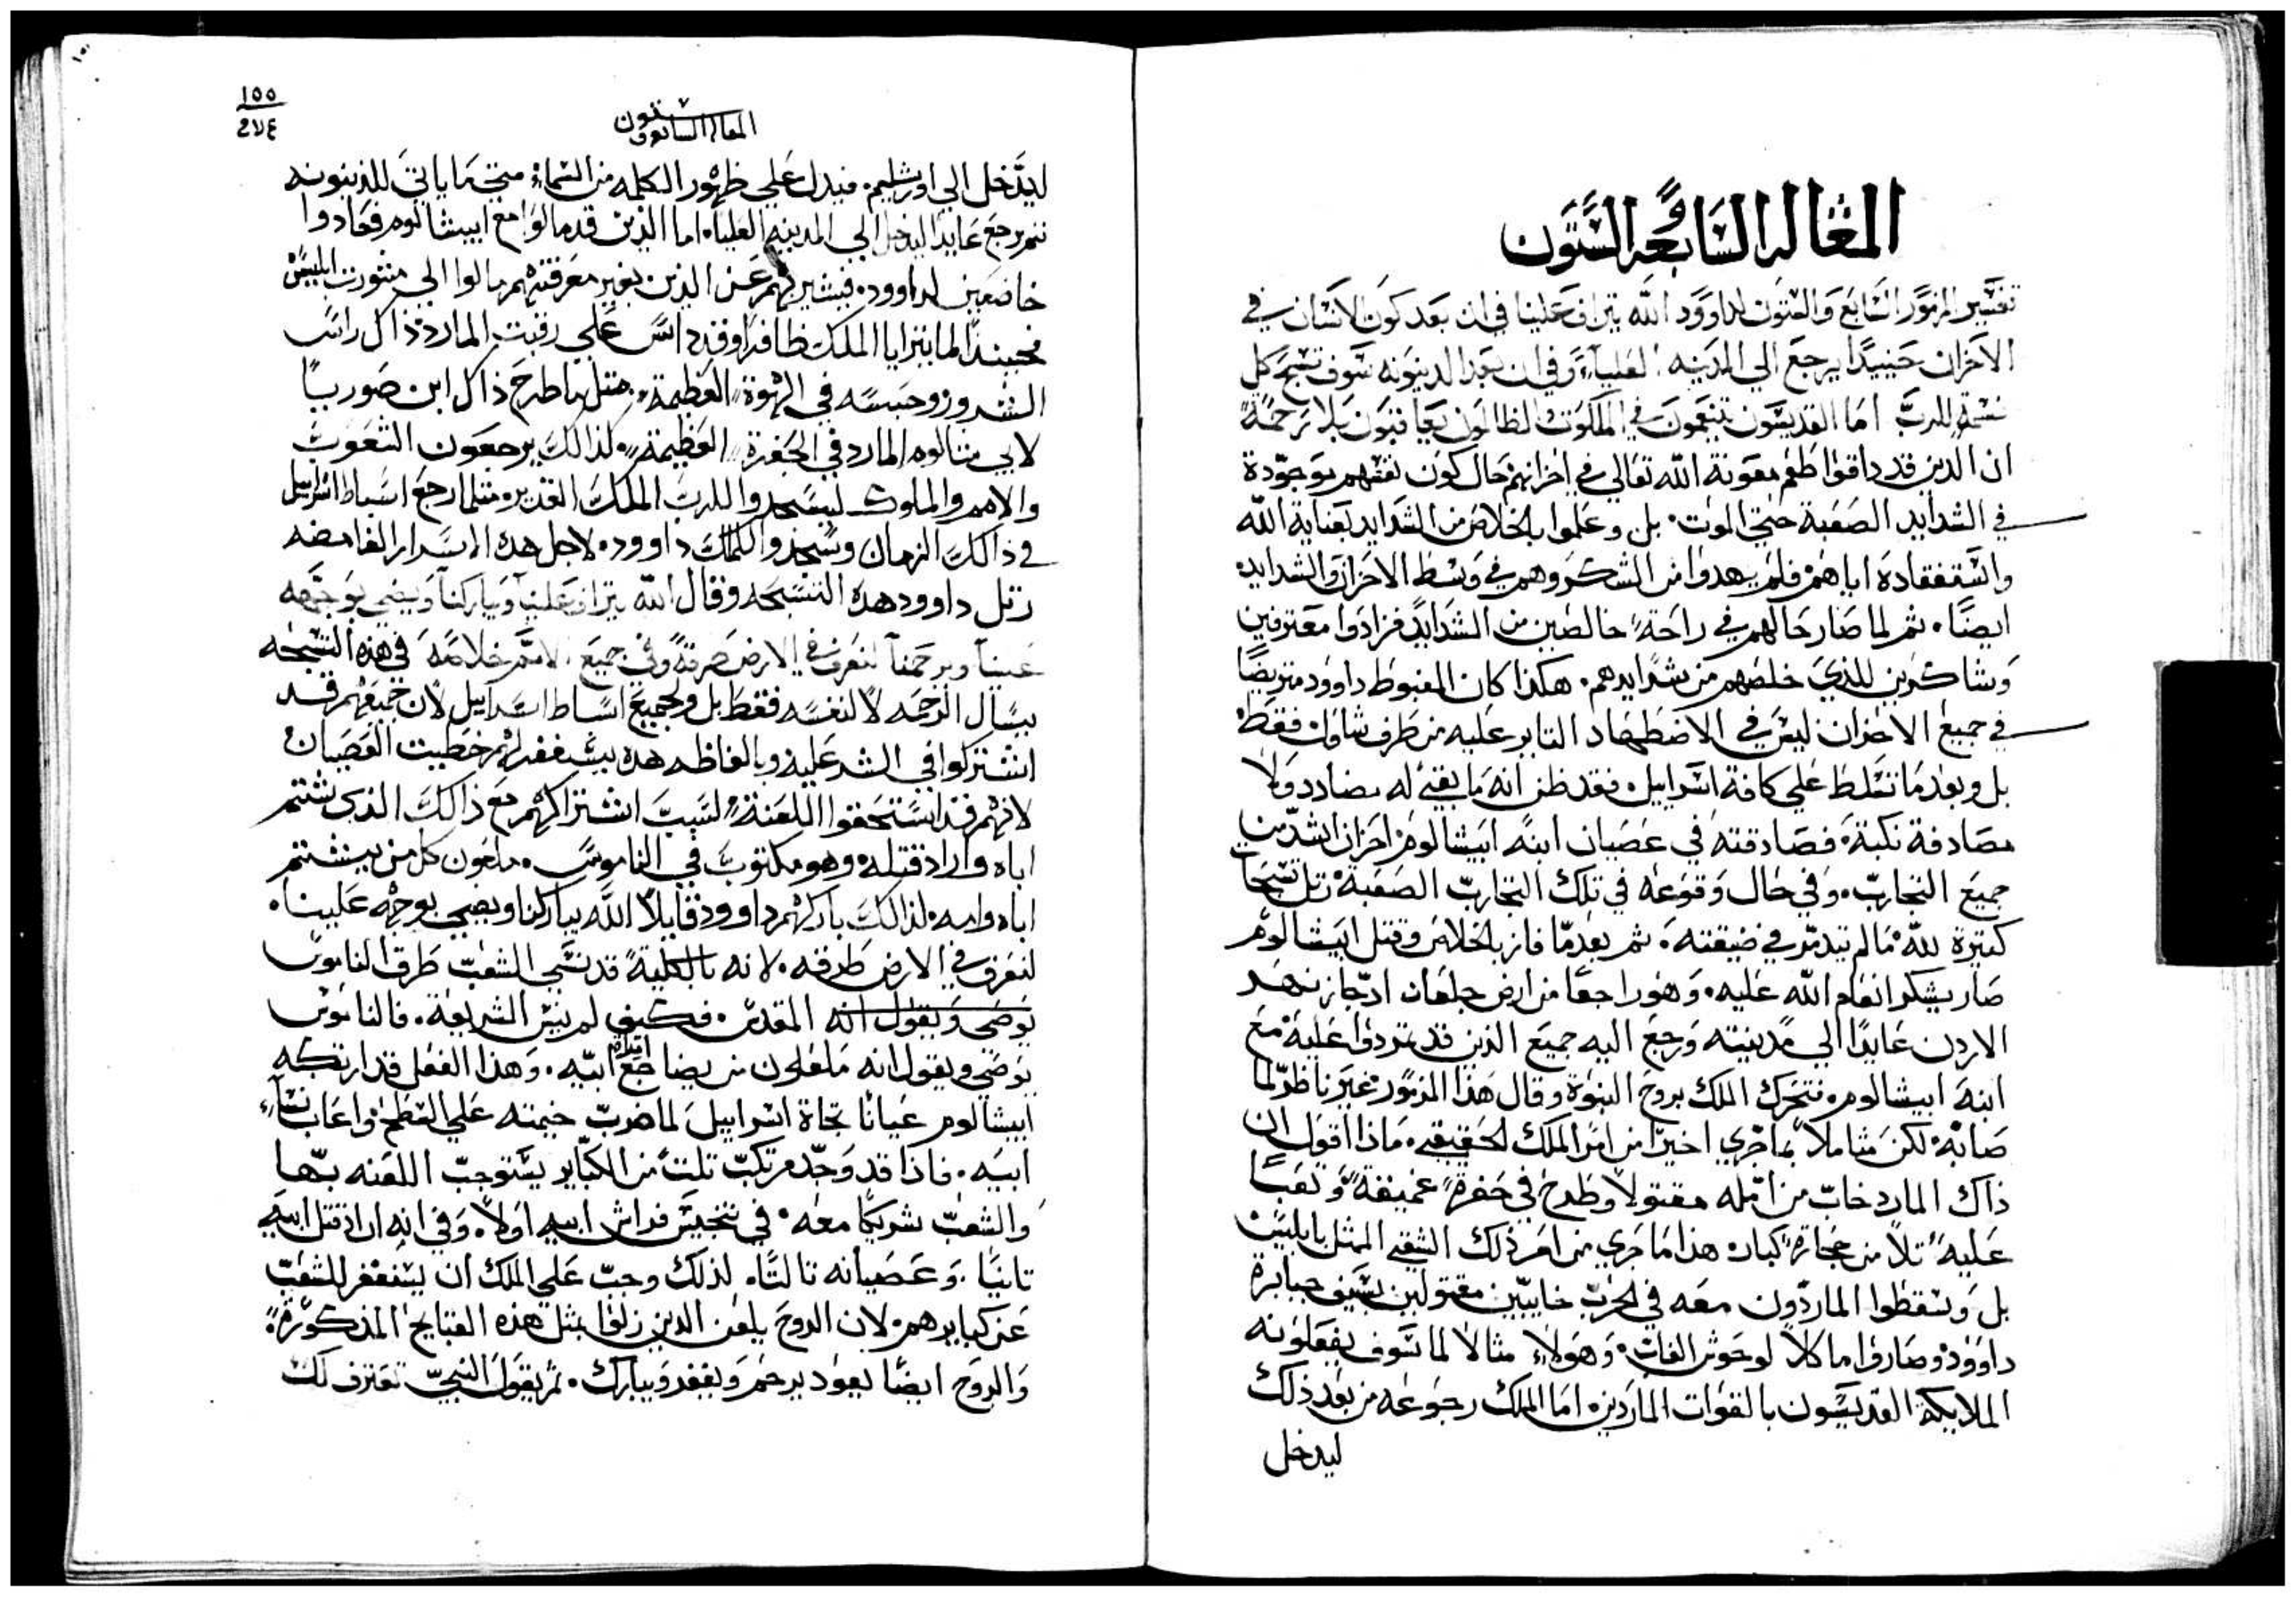 المقاله السابعه الستون
تفسير المزمور السابع والستون لداوود الله يتراف علينا في ان بعد كون الانسان في
الاحزان حينيدًا يرجع الي المدينه العلياء وفي ان بعد الدينونه سوف تسبح كل
نسمة للرب اما القديسون يتنعمون في الملكوت الظالمون يعاقبون بلا رحمة
ان الذين قد داقوا طعم معونة الله تعالي في احزانهم حال كون نفتهم موجودة
في الشدايد الصعبة حتي الموت. بل وعلموا بالخلاص من الشدايد بعناية الله
واستفقاده اياهم فلم يهدوا من الشكر وهم في وسط الاحزان والشدايد
ايضًا. ثم لما صار حالهم في راحة خالصين من الشدايد فزادوا معترفين
وشاكرين للذي خلصهم من شدايدهم. هكذا كان المغبوط داوود متريضًا
في جميع الاحزان ليس في الاضطهاد التاير عليه من طرف شاول فقط
بل وبعد ما تسلط علي كافة اسراييل. فقد ظن انه ما بقي له مضادد ولا
مصادفة نكبة. فصادفته في عصيان ابنه ابيشالوم احزان اشد من
جميع التجارب. وفي حال وقوعه في تلك التجارب الصعبة رتل تسبحات
كتيرة لله ما لم تيدمر في ضيقته. ثم بعد ما فاز بالخلاص وقتل ابيشالوم
صار يشكر انعام الله عليه. وهو راجعًا من ارض جلعاد اد جاز نهر
الاردن عايدًا الي مدينته ورجع اليه جميع الذين قد تمردوا عليه مع
ابنه ابيشالوم. فتحرك الملك بروح النبوة وقال هذا المزمور غير ناظر لما
صابه لكن متاملاً بما جري اخيرًا من امر الملك الحقيقي. ماذا اقول ان
ذاك المارد خاب من امله مقتولاً وطرح في حفرة عميقة ونصبًا
عليه تلاً من حجارة كبار. هذا ما جري من امر ذلك الشقي الممثل بابليس
بل وسقطوا الماردون معه في الحرب خايبين مقتولين بسيف جبابرة
داوود وصاروا ماكلاً لوحوش الغاب. وهولاء مثالا لما سوف يفعلونه
الملايكة القديسون بالقوات الماردين. اما الملك رجوعه من بعد ذلك
ليدخل
١٥٥
٢٧٤
المقاله السابعه ستون
ليدخل الي اورشليم. فيدل علي ظهور الكلمه من السماء متي ما ياتي للدينونه
ثم يرجع عايدا ليدخل الي المدينه العلياء. اما الذين قدمالوا مع ابيشالوم فعادوا
خاضعين لداوود. فيشير بهم عن الذين بغير معرفتهم مالوا الي مشورت ابليس
فحينيدًا لما يتزايا الملك ظافرا وقد داس علي رقبت المارد ذاك راس
الشرور وحبسه في الهوة العظيمة. متل ما طرح ذاك ابن صوريا
لابيشالوم المارد في الحفرة العظيمة. لذلك يرجعون الشعوب
والامم والملوك ليسجدوا للرب الملك القدير. متلما رجع اسباط اسراييل
في ذالك الزمان وسجدوا للملك داوود. لاجل هده الاسرار الغامضه
رتل داوود هده التسبحه وقال الله يتراف علينا ويباركنا ويضي بوجهه
علينا ويرحمنا لنعرف في الارض طرقة وفي جميع الامم خلاصه في هذه التسبحه
يسال الرحمه لا لنفسه فقط بل ولجميع اسباط اسراييل لان جميعهم قد
اشتركوا في الشر عليه وبالفاظه هده يستغفر لهم خطيت العصيان
لانهم قد استحقوا اللعنة لسبب اشتراكهم مع ذالك الذي شتم
اباه واراد قتله. وهو مكتوب في الناموس. ملعون كل من يشتم
اباه وامه. لذالك باركهم داوود قايلاً الله يباركنا ويضي بوجهه علينا.
لنعرف في الارض طرقه. لانه بالكلية قد نسي الشعب طرق الناموس
يوصي ويقول انه المقدس. فكيف لم نيس الشريعة. فالناموس
يوصي ويقول انه ملعون من يضاجع امراة ابيه. وهذا الفعل قد ارتكبه
ابيشالوم عيانًا تجاة اسراييل لما ضرب خيمته علي السطح واعاب نساء
ابيه. فاذا قد وجد مرتكب تلت من الكباير يستوجب اللعنه بها
والشعب شريكًا معه. في تنجيس فراش ابيه اولاً. وفي انه اراد قتل ابيه
تانيًا. وعصيانه تالتًا. لذلك وجب علي الملك ان يستغفر للشعب
عن كبايرهم. لان الروح يلعن الدين زلوا بمثل هذه القبايح المذكورة.
والروح ايضًا يعود يرحم ويغفر ويبارك. ثم يقول النبي تعترف لك